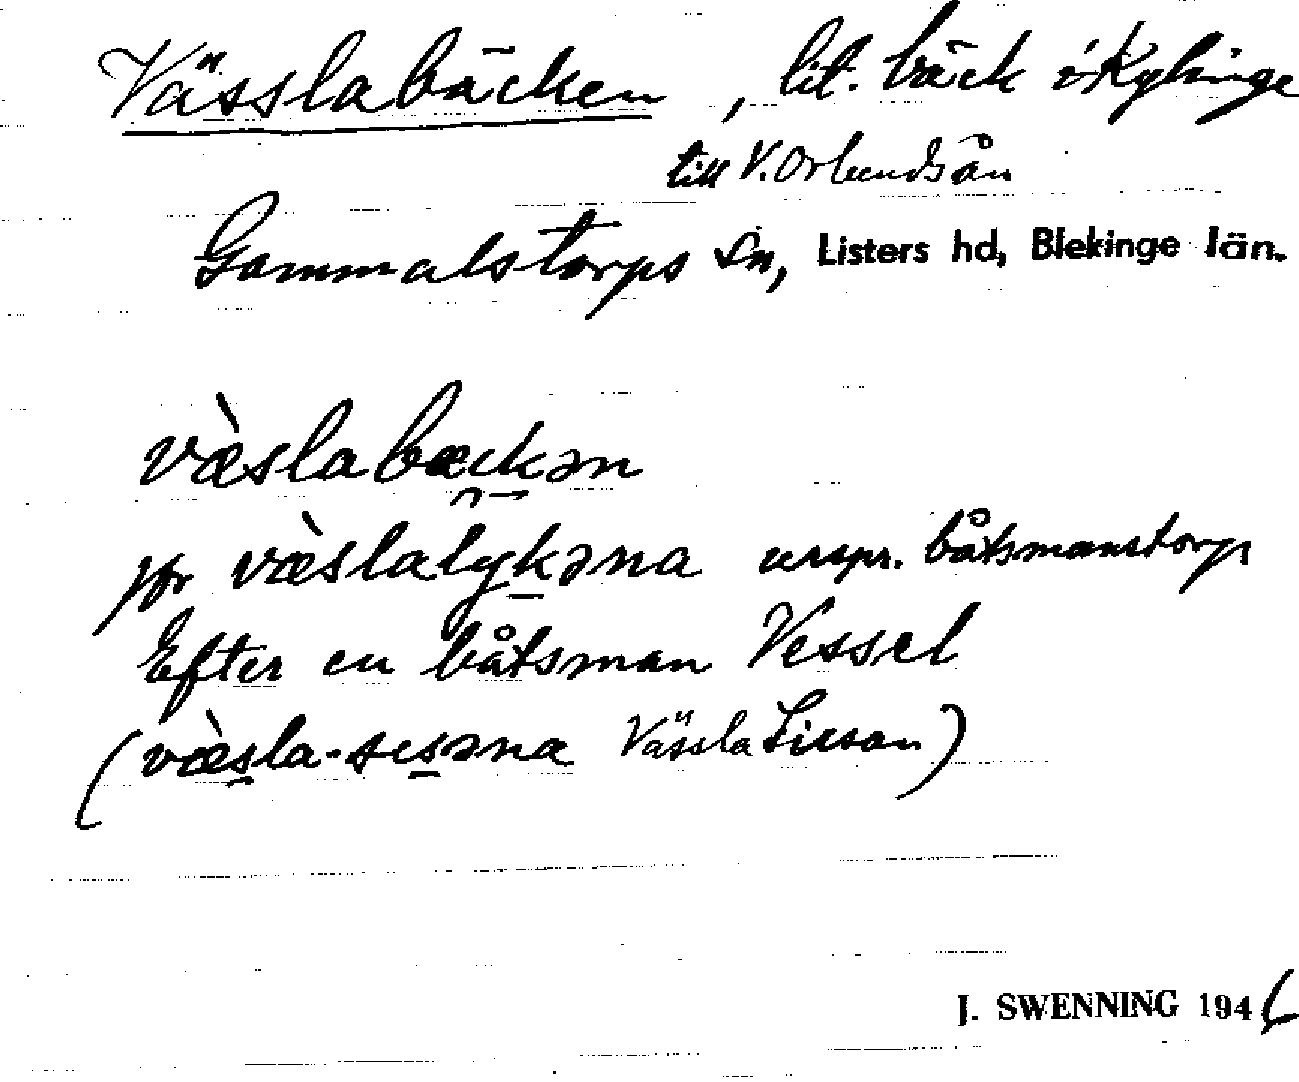 Vässlabäcken, lit. bäck i Kylinge
till V. Orlundsån
Gammalstorps sn, Listers hd, Blekinge län.
væ̀slabæckən
jfr væ̀slalykəna urspr. båtsmanstorp
Efter en båtsman Vessel
(væ̀sla-sisəna Vässla Sissan)
J. SWENNING 1946